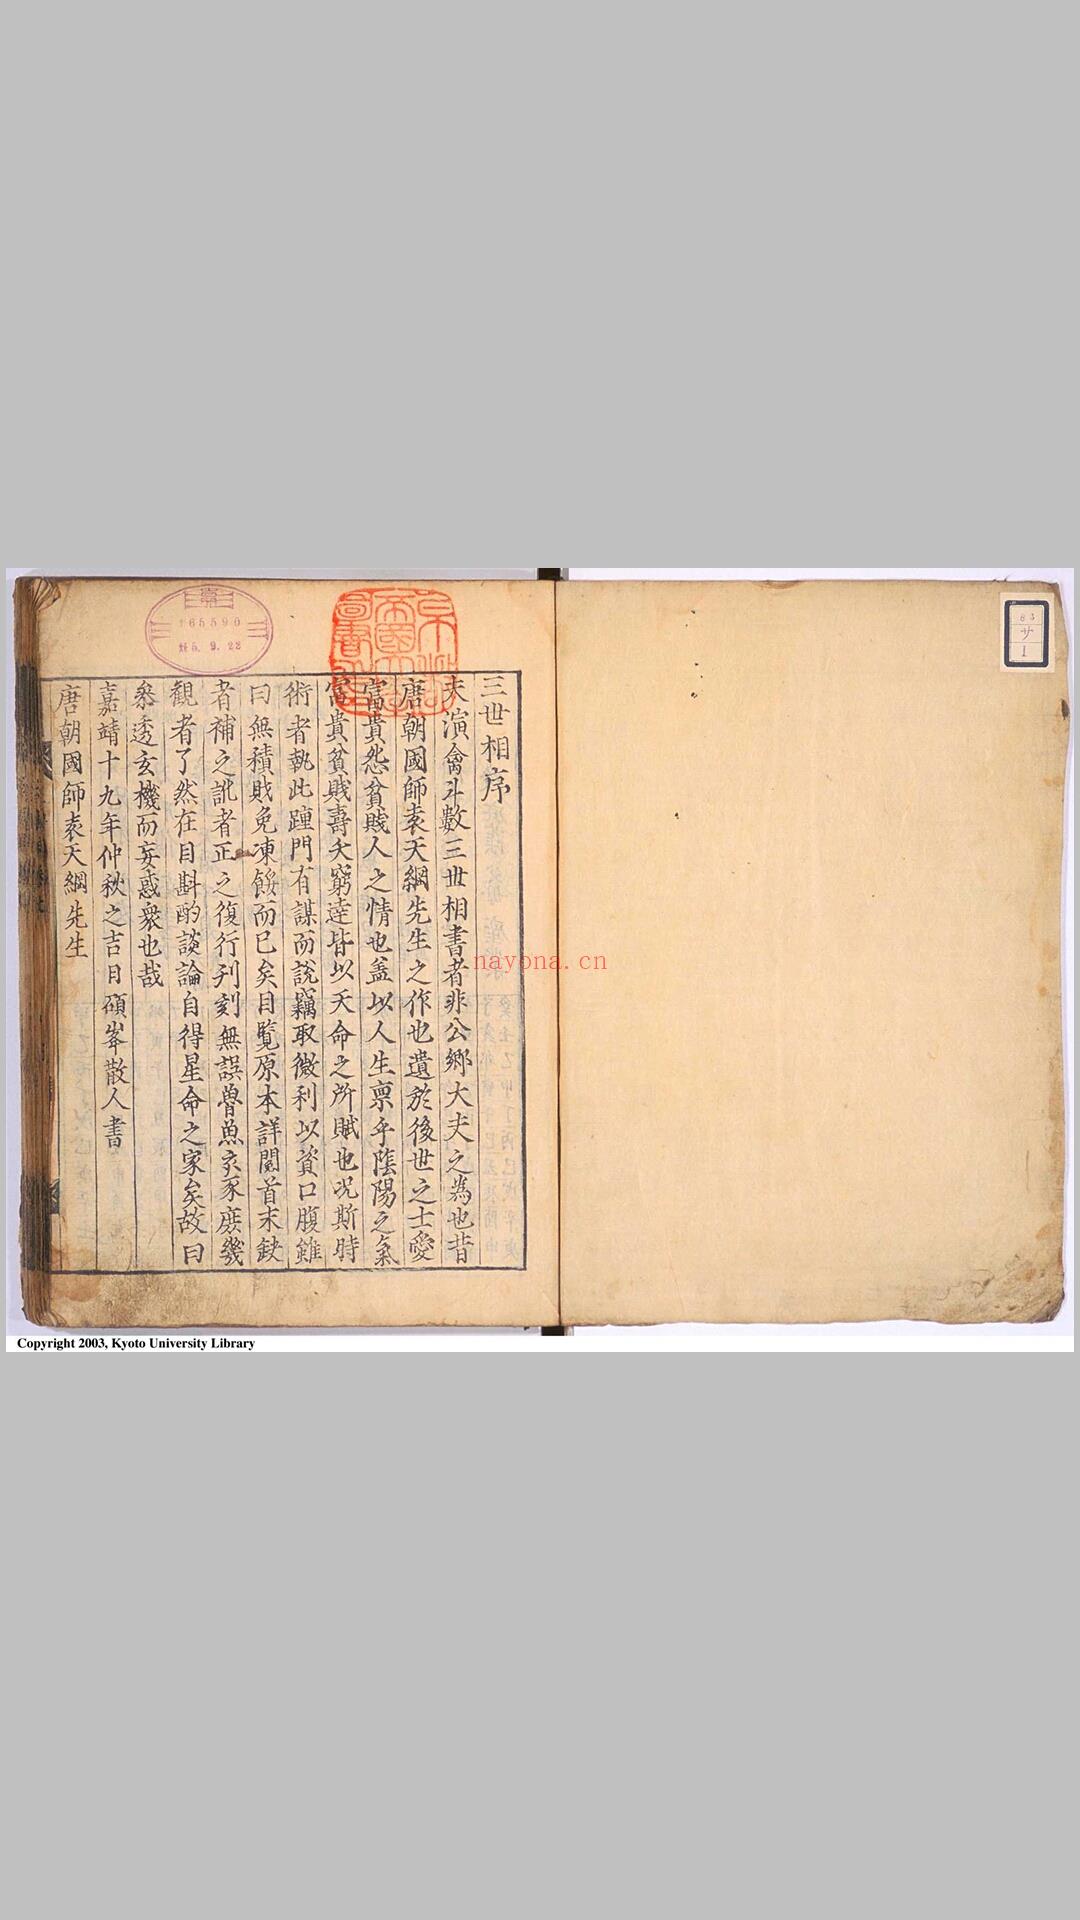 三世相序
夫演禽斗數三世相書者非公鄉大夫之為也昔
唐朝國師袁天綱先生之作也遺於後世之士愛
富貴怨貧賤人之情也盖以人生禀乎陰陽之氣
富貴貧賤壽夭窮達皆以天命之所賦也况斯時
術者執此踵門有謀而說竊取微利以資口腹雖
曰無積賍免凍餒而已矣目覽原本詳閱首末缺
者補之訛者正之復行刋刻無誤魯魚亥豕庶幾
觀者了然在目斟酌談論自得星命之家矣故曰
叅透玄機而妄惑衆也哉
嘉靖十九年仲秋之吉日碩峯散人書
唐朝國師袁天綱先生
165590
5. 9. 22
83
サ
1
nayona.cn
Copyright 2003, Kyoto University Library